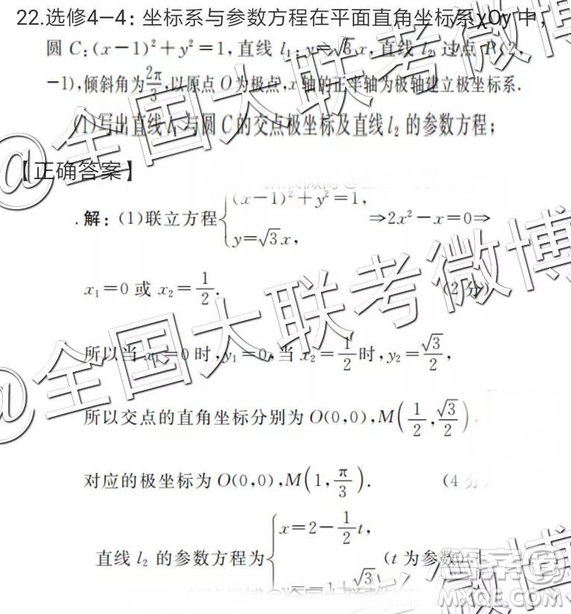 22.选修4-4：坐标系与参数方程在平面直角坐标系xOy中，
圆C:(x-1)²+y²=1,直线l₁:y=√3x,直线l₂过点P(2,
-1),倾斜角为2π/3,以原点O为极点,x轴的正半轴为极轴建立极坐标系.
(1)写出直线l₁与圆C的交点极坐标及直线l₂的参数方程;
【正确答案】
解：(1)联立方程{(x-1)²+y²=1, y=√3x, ⇒2x²-x=0⇒
x₁=0或x₂=1/2. (2分)
所以当x₁=0时,y₁=0,当x₂=1/2时,y₂=√3/2,
所以交点的直角坐标分别为O(0,0),M(1/2,√3/2).
对应的极坐标为O(0,0),M(1,π/3). (4分
直线l₂的参数方程为{x=2-1/2t, (t为参数
@全国大联考微博
@全国大联考微博